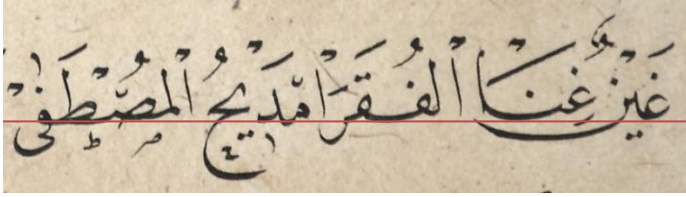 غَيْنٌ غِنَا الْفُقَرَا مَدِيحُ الْمُصْطَفَى